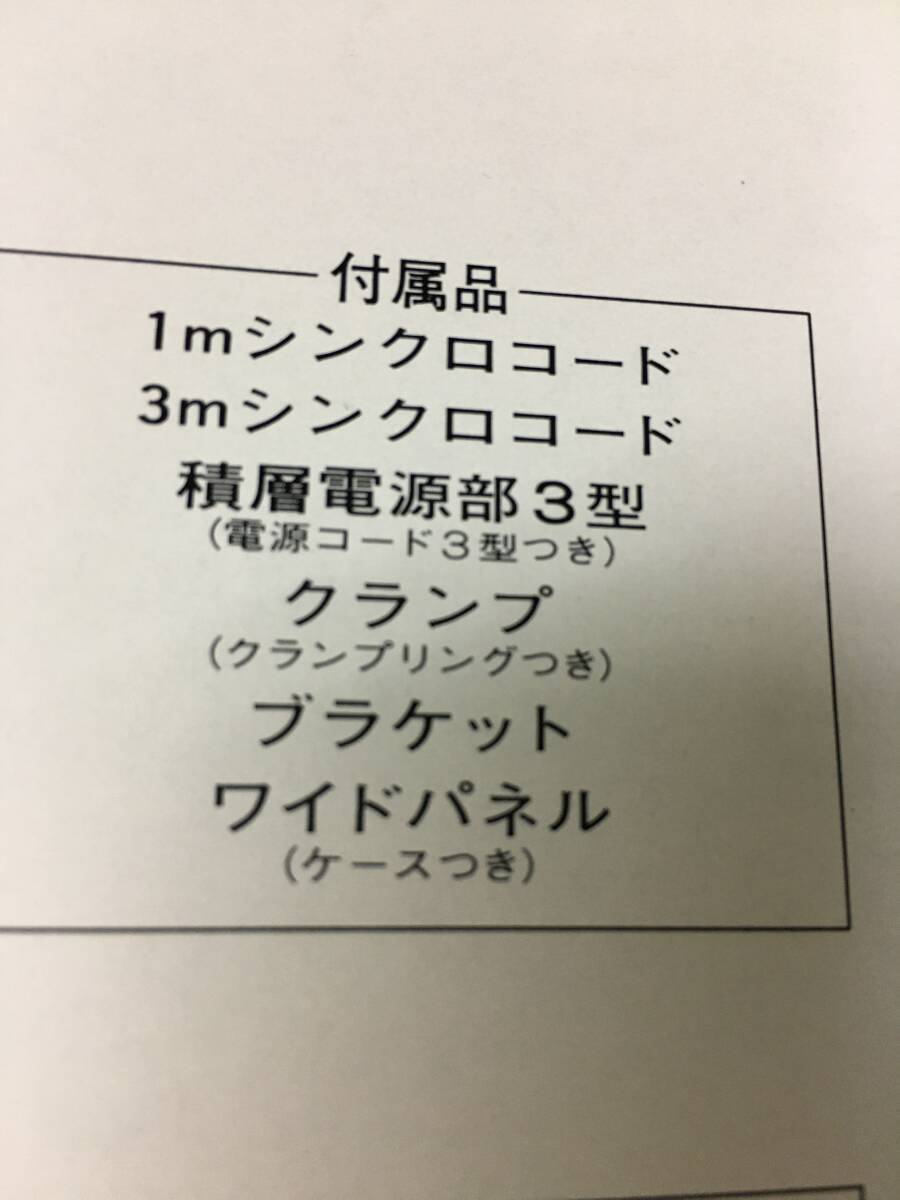 付属品
1mシンクロコード
3mシンクロコード
積層電源部3型
(電源コード3型つき)
クランプ
(クランプリングつき)
ブラケット
ワイドパネル
(ケースつき)